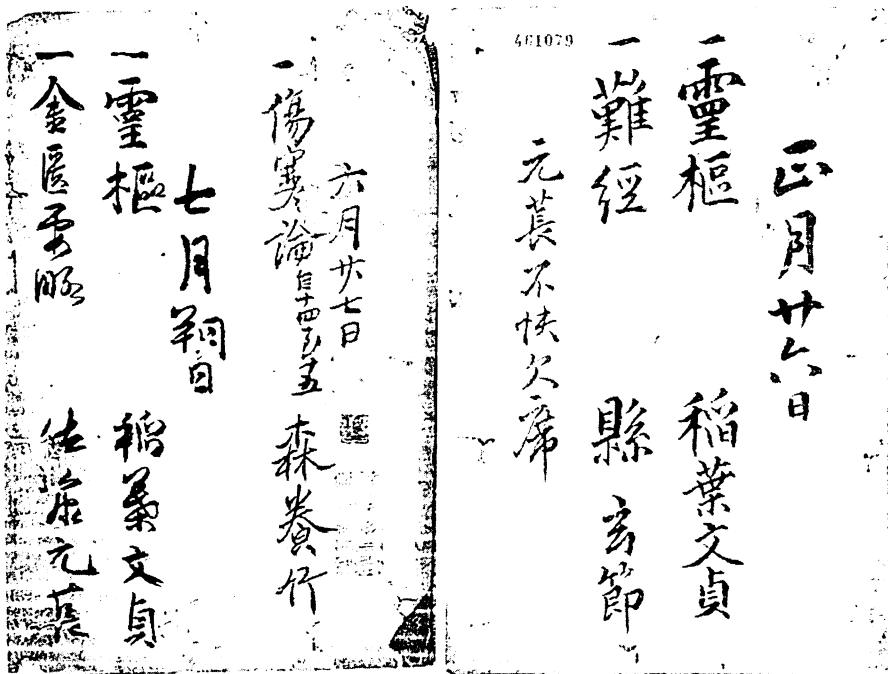 461079
正月廿六日
一靈樞 稲葉文貞
一難經 縣玄節
元萇不快欠席
六月廿七日
一傷寒論自十四至十五 森養竹
七月朔日
一靈樞 稲葉文貞
一金匱要略 佐藤元萇